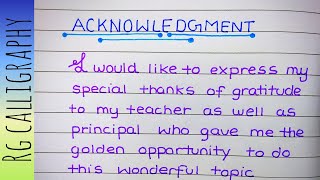 RG CALLIGRAPHY
ACKNOWLEDGMENT
I would like to express my
special thanks of gratitude
to my teacher as well as
principal who gave me the
golden opportunity to do
this wonderful topic